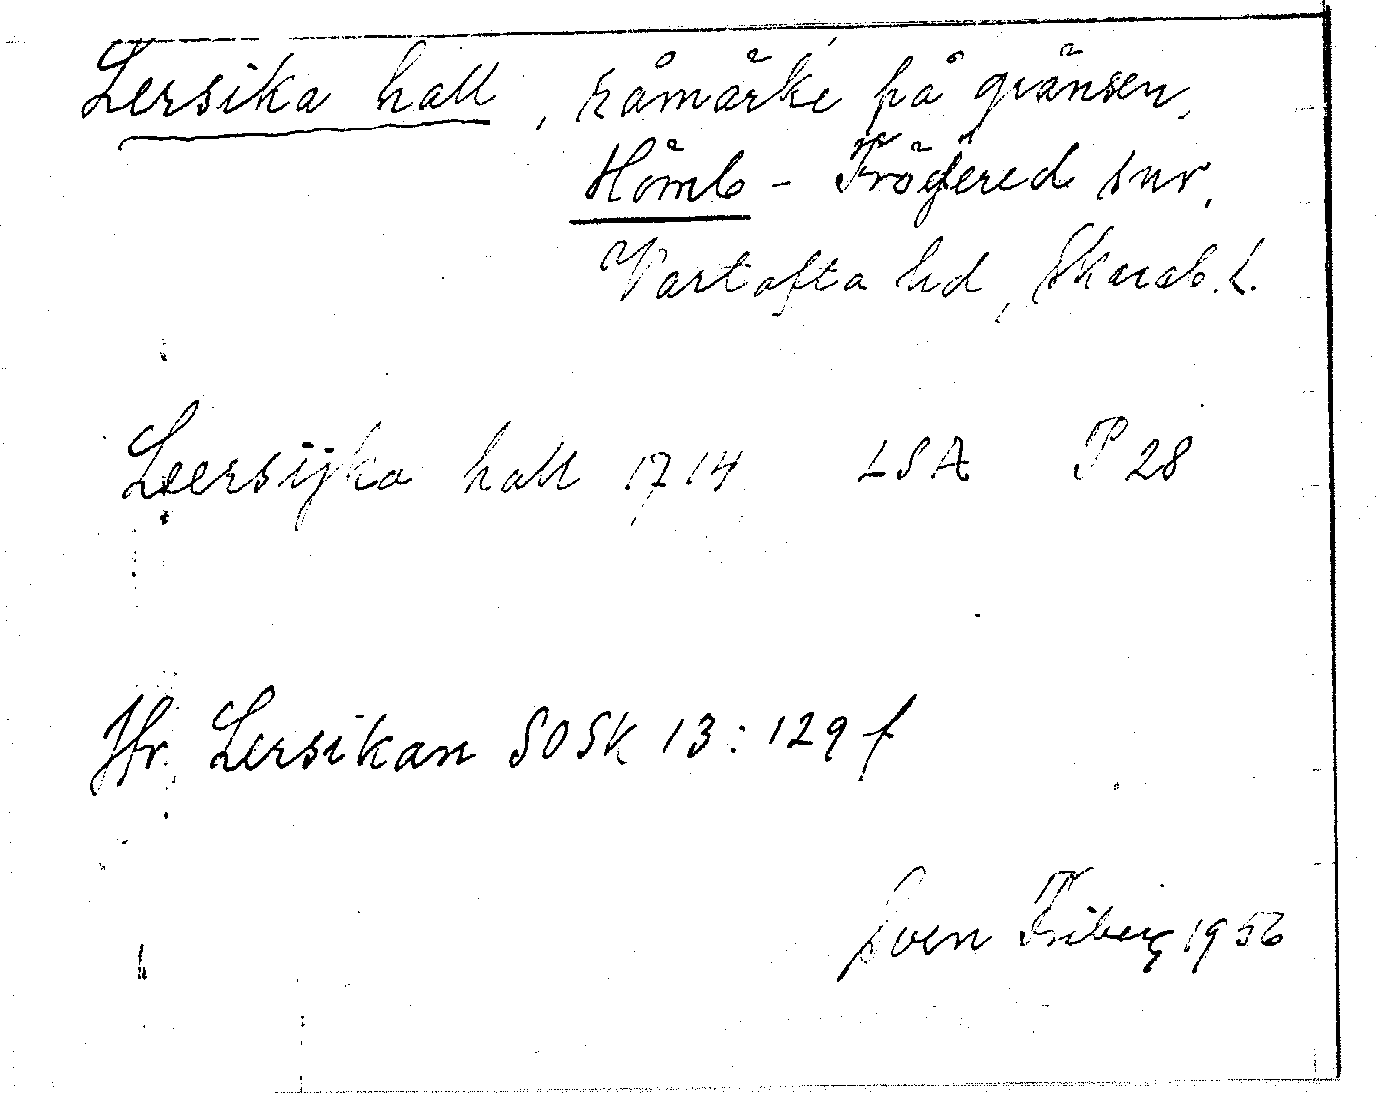 Lersika hall, råmärke på gränsen,
Hömb - Fröjered snr.
Vartofta hd, Skarab. L.
Leersijka hall 1714 LSA P 28
Jfr. Lersikan SOSk 13:129 f
Sven Friberg 1956